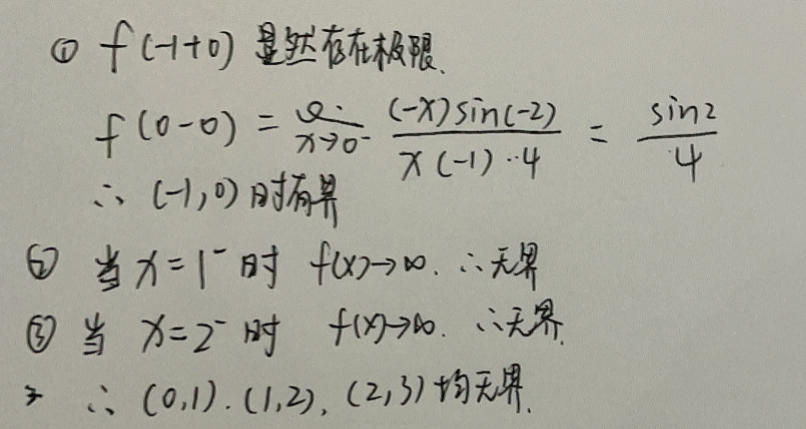 ① f(-1+0) 显然存在极限.
f(0-0) = lim x→0⁻ (-x)sin(-2) / x(-1)·4 = sin2 / 4
∴ (-1,0) 时有界
② 当 x=1⁻ 时 f(x)→∞. ∴无界
③ 当 x=2⁻ 时 f(x)→∞. ∴无界.
∴ (0,1). (1,2), (2,3) 均无界.